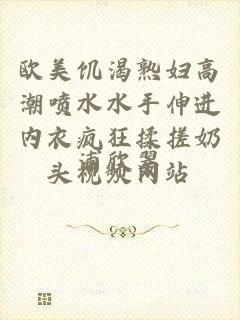 欧美饥渴熟妇高
潮喷水水手伸进
内衣疯狂揉搓奶
头视频网站